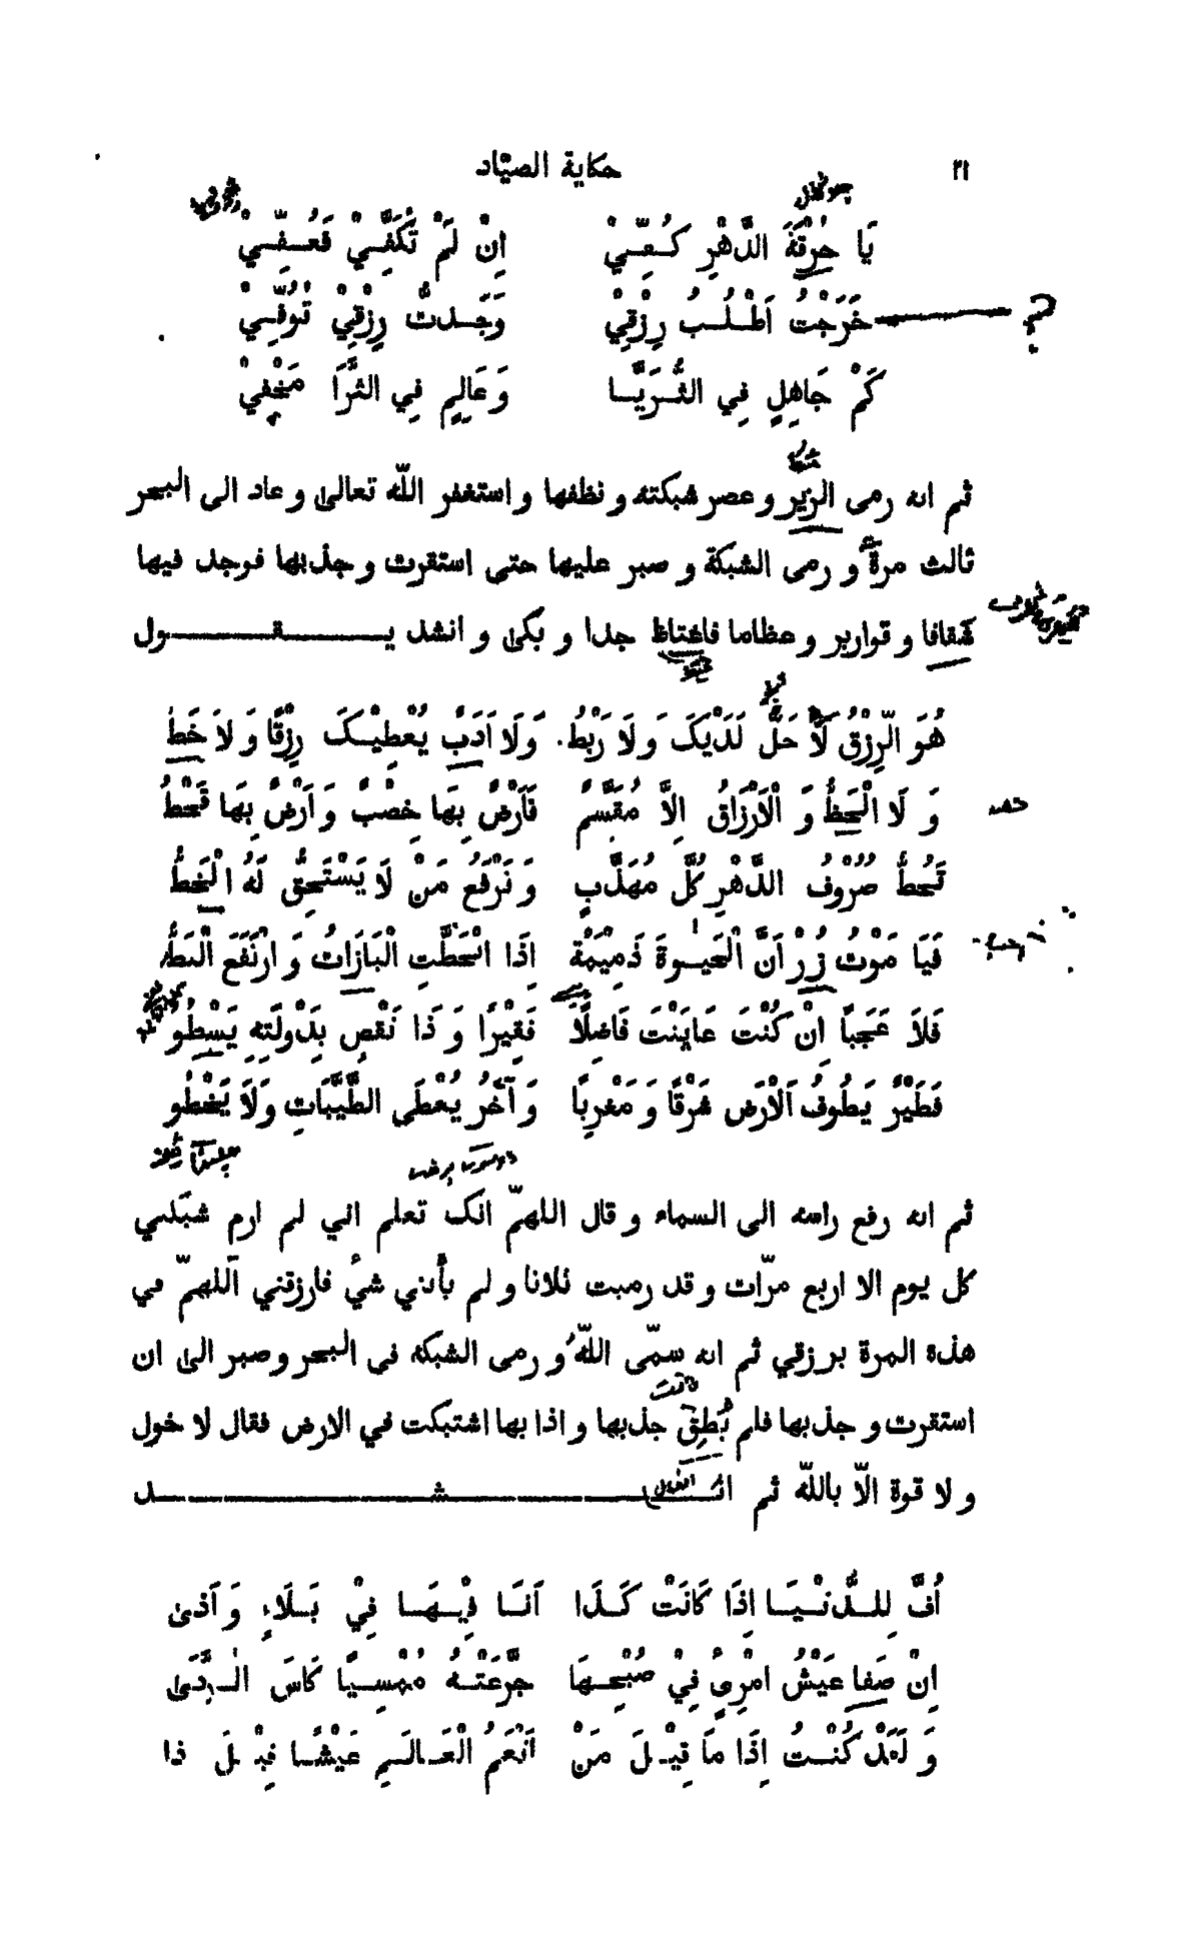 ٢١ حكاية الصيّاد
يَا حُرْقَةَ الدَّهْرِ كُـفِّـيْ اِنْ لَمْ تَكُفِّـيْ فَعُـفِّـيْ
خَرَجْتُ اَطْـلُـبُ رِزْقِيْ وَجَـدتُّ رِزْقِيْ تُوُفِّـيْ
كَمْ جَاهِلٍ فِي الثُّـرَيَّـا وَعَالِمٍ فِي الثَّرَا مَخْفِيْ
ثم انه رمى الزير وعصر شبكته ونظفها واستغفر اللّه تعالىٰ وعاد الى البحر
ثالث مرة ورمى الشبكة وصبر عليها حتى استقرت وجذبها فوجد فيها
شقافا وقوارير وعظاما فاغتاظ جدا وبكىٰ وانشد يـــقـــول
هُوَ الرِّزْقُ لَا حَلٌّ لَدَيْكَ وَلَا رَبْطُ. وَلَا اَدَبٌ يُعْطِيْـكَ رِزْقًا وَلَا خَطُّ
وَ لَا الْحَظُّ وَ الْاَرْزَاقُ اِلَّا مُقَسَّمٌ فَاَرْضٌ بِهَا خِصْبٌ وَاَرْضٌ بِهَا قَحْطُ
تَحُطُّ صُرُوْفُ الدَّهْرِ كُلَّ مُهَذَّبٍ وَ تَرْفَعُ مَنْ لَا يَسْتَحِقُّ لَهُ الْخَطُّ
فَيَا مَوْتُ زُرْ اَنَّ الْحَيٰـوةَ ذَمِيْمَةٌ اِذَا انْحَطَّتِ الْبَازَاتُ وَارْتَفَعَ الْبَطُّ
فَلَا عَجَبًا اِنْ كُنْتَ عَايَنْتَ فَاضِلًا فَقِيْرًا وَ ذَا نَقْصٍ بِدَوْلَتِهِ يَسْطُو
فَطَيْرٌ يَطُوفُ الْاَرْضَ شَرْقًا وَمَغْرِبًا وَ آخَرُ يُعْطَى الطَّيِّبَاتِ وَلَا يَخْطُو
ثم انه رفع راسه الى السماء وقال اللهمّ انك تعلم اني لم ارم شبكتي
كل يوم الا اربع مرّات وقد رميت ثلاثا ولم يأتني شئ فارزقني اللهمّ في
هذه المرة برزقي ثم انه سمّى اللّه ورمى الشبكة في البحر وصبر الىٰ ان
استقرت وجذبها فلم يُطِقْ جذبها واذا بها اشتبكت في الارض فقال لا حول
ولا قوة الّا باللّه ثم انـــشـــد
اُفٍّ لِلـدُّنْـيَـا اِذَا كَانَتْ كَـذَا اَنَـا فِيْـهَـا فِيْ بَـلَاءٍ وَاَذىٰ
اِنْ صَفَا عَيْشُ امْرِئٍ فِيْ صُبْحِـهَا جَرَّعَتْـهُ مُمْسِـيًا كَاسَ الـرَّدَىٰ
وَ لَقَدْ كُنْـتُ اِذَا مَا قِيْـلَ مَنْ اَنْعَمُ الْعَـالَـمِ عَيْشًـا قِيْـلَ ذا